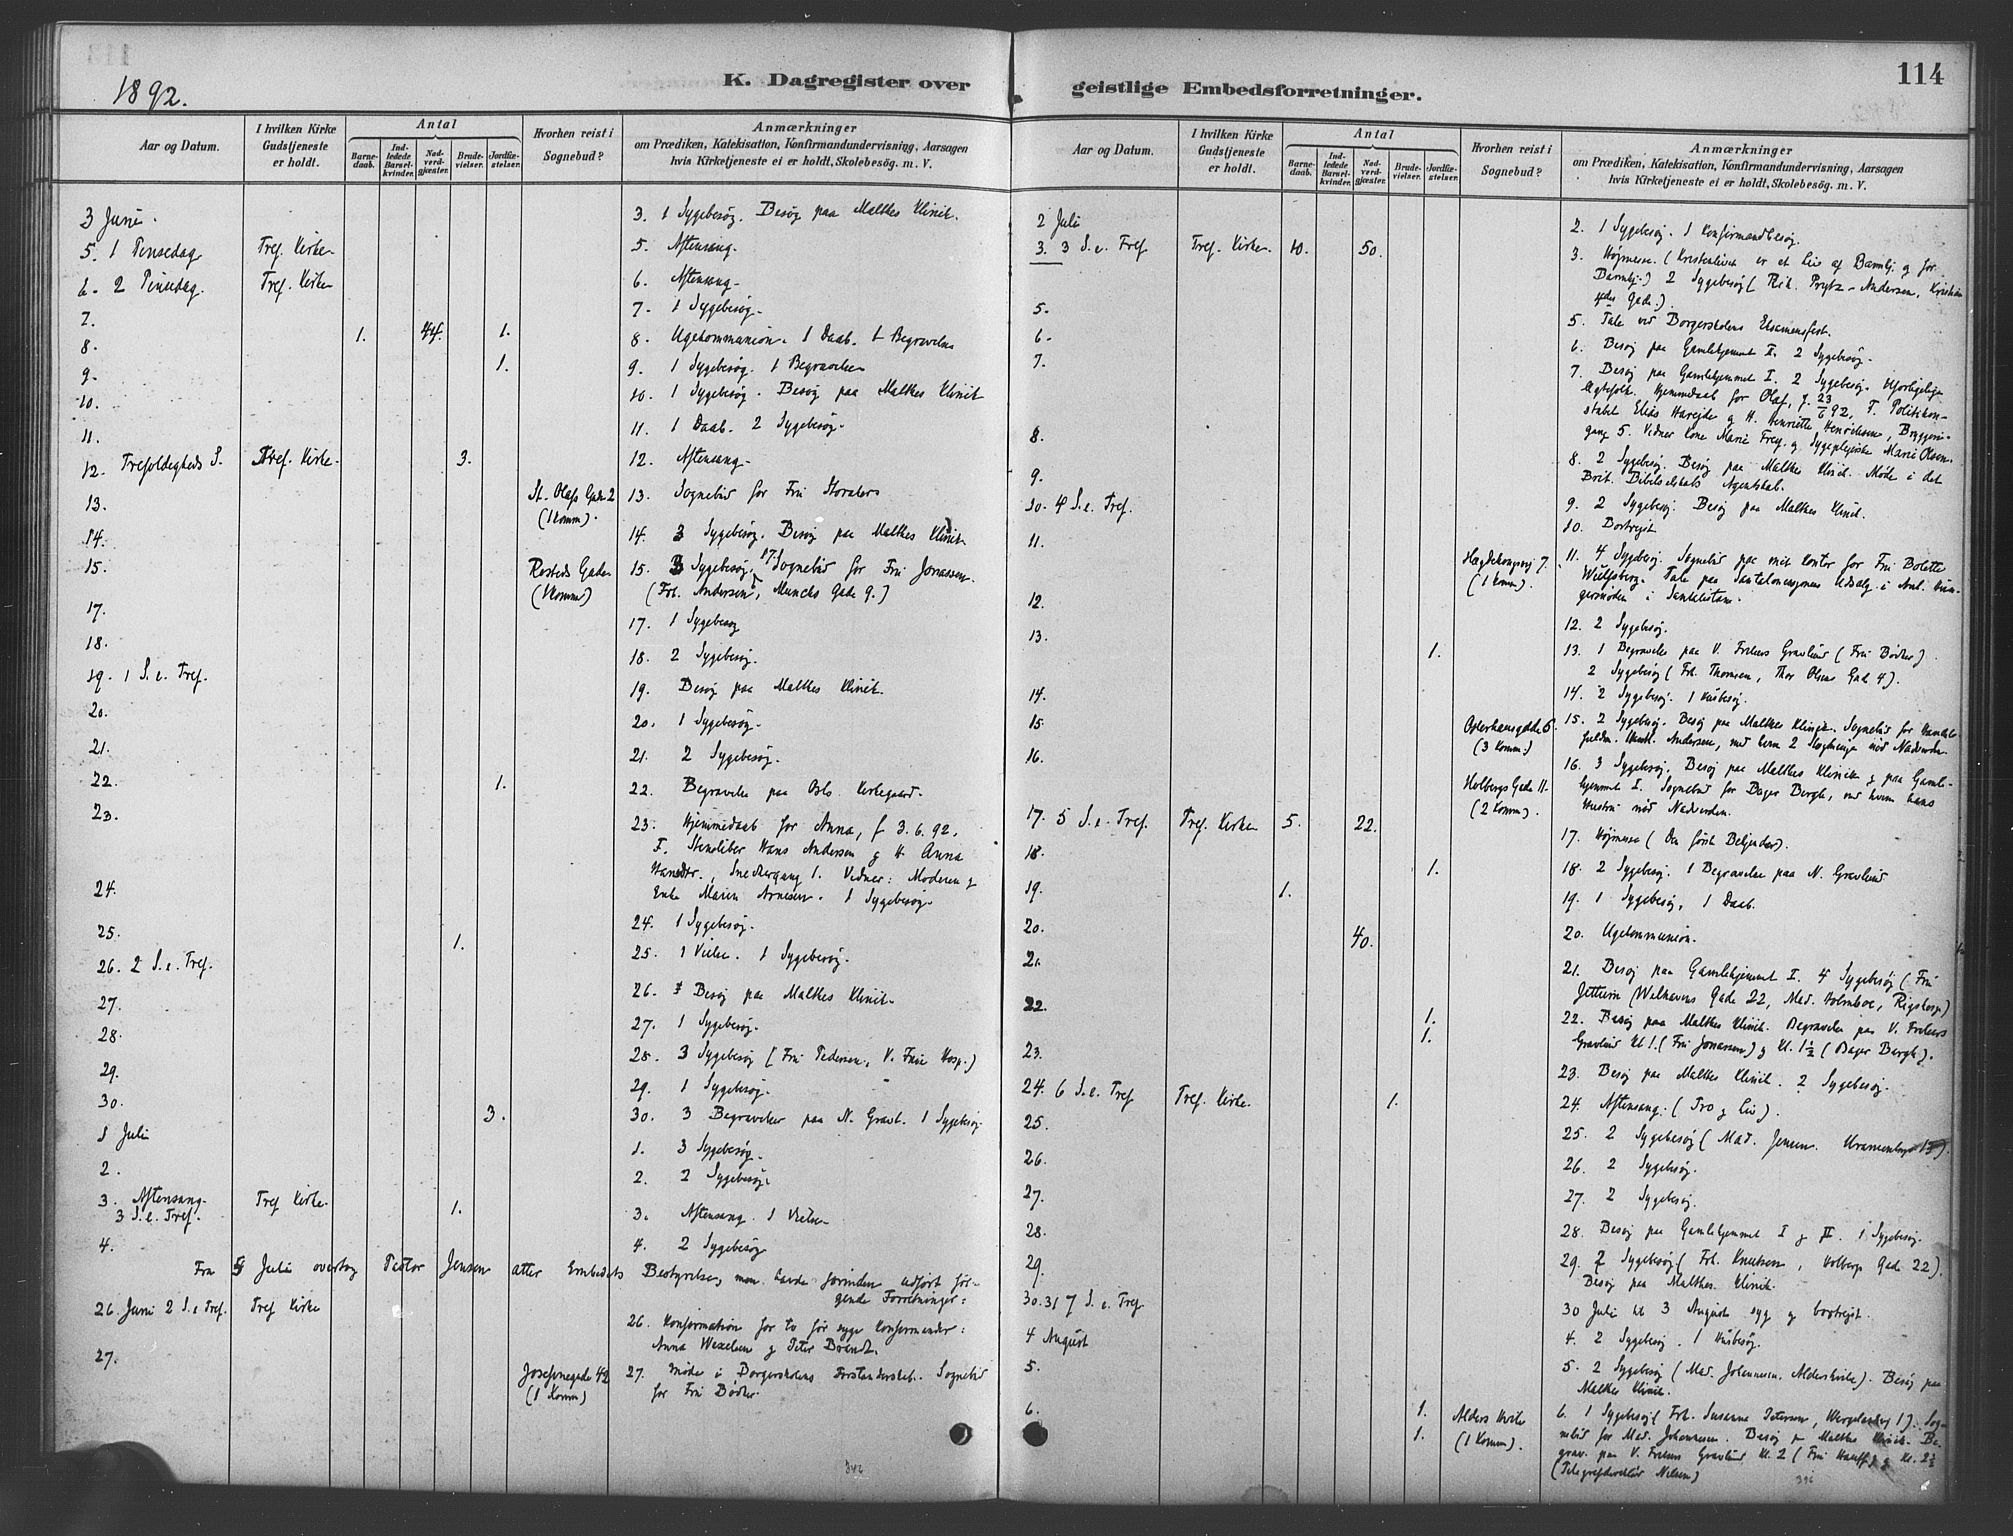 114
1892.
K. Dagregister over
geistlige Embedsforretninger.
Aar og Datum.
I hvilken Kirke Gudstjeneste er holdt.
Antal
Barne-daab.
Ind-ledede Barsel-kvinder.
Nad-verd-gjæster.
Brude-vielser.
Jordfæ-stelser.
Hvorhen reist i Sognebud?
Anmærkninger
om Prædiken, Katekisation, Konfirmandundervisning, Aarsagen
hvis Kirketjeneste ei er holdt, Skolebesøg. m. V.
3 Juni. 3. 1 Sygebesøg. Besøg paa Malthes Klinik.
5. 1 Pinsedag Tref. Kirke 5. Aftensang.
6. 2 Pinsedag. Tref. Kirke 6. Aftensang.
7. 7. 1 Sygebesøg.
8. 1. 44. 1. 8. Ugekommunion. 1 Daab. 1 Begravelse
9. 1. 9. 1 Sygebesøg. 1 Begravelse
10. 10. 1 Sygebesøg. Besøg paa Malthes Klinik
11. 11. 1 Daab. 2 Sygebesøg.
12. Trefoldigheds S. Tref. Kirke. 3. 12. Aftensang
13. St. Olafs Gade 2 13. Sognebud for Fru
(1 Komm).
14. 14. 3 Sygebesøg. Besøg paa Malthes Klinik
15. Rosteds Gade 15. 3 Sygebesøg. Sognebud for Fru Jonassen.
(1 Komm) (Frk. Andersen, Munchs Gade 9.)
17. 17. 1 Sygebesøg
18. 18. 2 Sygebesøg.
19. 1 S. e. Tref. 19. Besøg paa Malthes Klinik.
20. 20. 1 Sygebesøg.
21. 21. 2 Sygebesøg.
22. 1. 22. Begravelse paa Kirkegaard.
23. 23. Hjemmedaab for Anna, f 3.6.92.
F. Hans Andersen g H. Anna
1. Vidner: Moderen g
24. Enke Maren . 1 Sygebesøg.
24. 1 Sygebesøg.
25. 1. 25. 1 Vielse. 1 Sygebesøg.
26. 2 S. e. Tref. 26. Besøg paa Malthes Klinik.
27. 27. 1 Sygebesøg.
28. 28. 3 Sygebesøg (Fru Pedersen, V. Frue Hosp.)
29. 29. 1 Sygebesøg.
30. 3. 30. 3 Begravelser paa N. Gravl. 1 Sygebesøg
1 Juli 1. 3 Sygebesøg.
2. 2. 2 Sygebesøg.
3. Aftensang. Tref Kirke. 1. 3. Aftensang. 1 Vielse
3 S. e. Tref.
4. 4. 2 Sygebesøg
Fra Juli overtog Pastor Jensen atter Embedets Bestyrelse, men havde forinden udført føl-
gende Forretninger:
26. Juni 2 S. e. Tref. Tref Kirke 26. Konfirmation for to før syge Konfirmander:
Anna Wexelsen g Peter Brandt.
27. Josefinegade 42 27. Møde i Borgerskolens Forstanderskab. Sognebud
(1 Komm) for Fru Bødker.
2 Juli 2. 1 Sygebesøg. 1 Konfirmandbesøg.
3. 3 S. e. Tref Tref. Kirke. 10. 50. 3. Højmesse. (Kristenlivet er et Liv af Barmhj. g for
Barmhj.) 2 Sygebesøg ( Prytz-Andersen,
4des Gade.)
5. 5. Tale ved Borgerskolens Eksamensfest.
6. 6. Besøg paa Gamlehjemmet I. 2 Sygebesøg.
7. 7. Besøg paa Gamlehjemmet I. 2 Sygebesøg.
Ægtefolk. Hjemmedaab for Olaf, f. 23/6 92, F. Politikon-
stabel Elias g H. Henriette Henriksen, Bryggeri-
gang 5. Vidner Kone Marie Frey g Sygepleierske Marie Olsen.
8. 8. 2 Sygebesøg. Besøg paa Malthes Klinik. Møde i det
Brit. Bibelselskabs Agentskab.
9. 9. 2 Sygebesøg. Besøg paa Malthes Klinik.
10. 4 S. e. Tref. 10. Bortreist
11. Hægdehaugsvej 7. 11. 4 Sygebesøg. Sognebud paa mit Kontor for Fru Bolette
(1 Komm). Wulfsberg. Tale paa Udsalg i
12. 12. 2 Sygebesøg.
13. 1. 13. 1 Begravelse paa V. Frelsers Gravlund (Fru Bødker)
2 Sygebesøg (Frk. Thomsen, Thor Olsens Gade 4).
14. 14. 2 Sygebesøg. 1 Husbesøg.
15 Osterhausgade 6. 15. 2 Sygebesøg. Besøg paa Malthes Klinik. Sognebud for
(3 Komm.) Andersen, med hvem 2 nød Nadverden.
16. Holbergs Gade 11. 16. 3 Sygebesøg. Besøg paa Malthes Klinik g paa Gamle-
(2 Komm). hjemmet I. Sognebud for Bager Bergh, med hvem hans
Hustru nød Nadverden.
17. 5 S. e. Tref. Tref. Kirke 5. 22. 17. Højmesse (Den først Betjendte).
18. 1. 18. 2 Sygebesøg. 1 Begravelse paa N. Gravlund
19. 1. 19. 1 Sygebesøg, 1 Daab.
20. 40. 20. Ugekommunion.
21. 21. Besøg paa Gamlehjemmet I. 4 Sygebesøg (Fru
Welhavens Gade 22, Mad. Holmboe, )
22. 1. 22. Besøg paa Malthes Klinik. Begravelse paa V. Frelsers
1. Gravlund Kl 1. (Fru Jonassen) g Kl. 1½ (Bager Bergh).
23. 23. Besøg paa Malthes Klinik. 2 Sygebesøg.
24. 6 S. e. Tref Tref. Kirke. 1. 24. Aftensang. (Tro g Liv).
25. 25. 2 Sygebesøg (Mad. Jensen. 13).
26. 26. 2 Sygebesøg.
27. 27. 2 Sygebesøg.
28. 28. Besøg paa Gamlehjemmet I g II. 1 Sygebesøg.
29. 29. 2 Sygebesøg (Frk. Knutsen, Holbergs Gade 22).
Besøg paa Malthes Klinik.
30. 31 7 S. e. Tref 30 Juli til 3 August syg g bortreist.
4 August 4. 2 Sygebesøg. 1 Husbesøg.
5. 5. 2 Sygebesøg (Mad. Johannesen, Aldershvile). Besøg paa
Malthes Klinik.
6. 1. Alders Hvile 6. 1 Sygebesøg (Frk. Susanna Petersen, ). Sog-
1. (1 Komm). nebud for Mad. Johannesen. Besøg p Malthes Klinik. Be-
grav. paa V. Frelsers Gravlund Kl. 2 (Fru Hauff) g Kl. 2½
(Telegrafdirektør Nielsen)